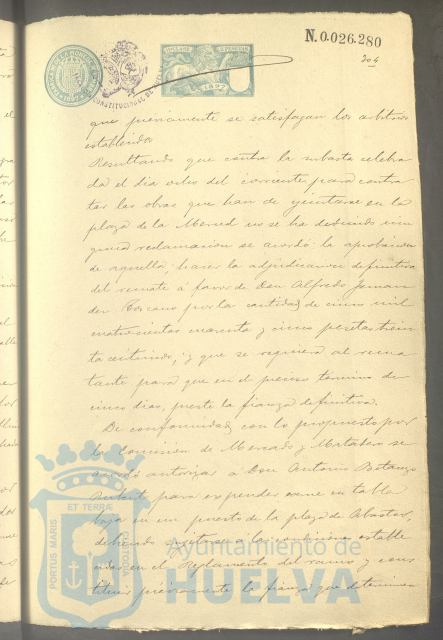 N. 0.026.280
204
1897
que previamente se satisfagan los arbitrios
establecidos
Resultando que contra la subasta celebra
da el dia ocho del corriente para contra
tar las obras que han de ejecutarse en la
plaza de la Merced no se ha deducido nin
guna reclamacion se acordó la aprobacion
de aquella, hacer la adjudicacion definitiva
del remate á favor de Don Alfredo
por la cantidad de cinco mil
cuatrocientas cuarenta y cinco pesetas trein
ta centimos, y que se requiera al rema
tante para que en el preciso término de
cinco dias, preste la fianza definitiva.
De conformidad con lo propuesto por
la Comision de Mercado y Matadero se
acordó autorizar á Don Antonio
para expender carne en tabla
baja en un puesto de la plaza de Abastos,
debiendo sujetarse a las condiciones estable
cidas en el Reglamento del ramo y cons
tituir previamente la fianza que determina
PORTUS MARIS ET TERRÆ CUSTODIA
Ayuntamiento de
HUELVA